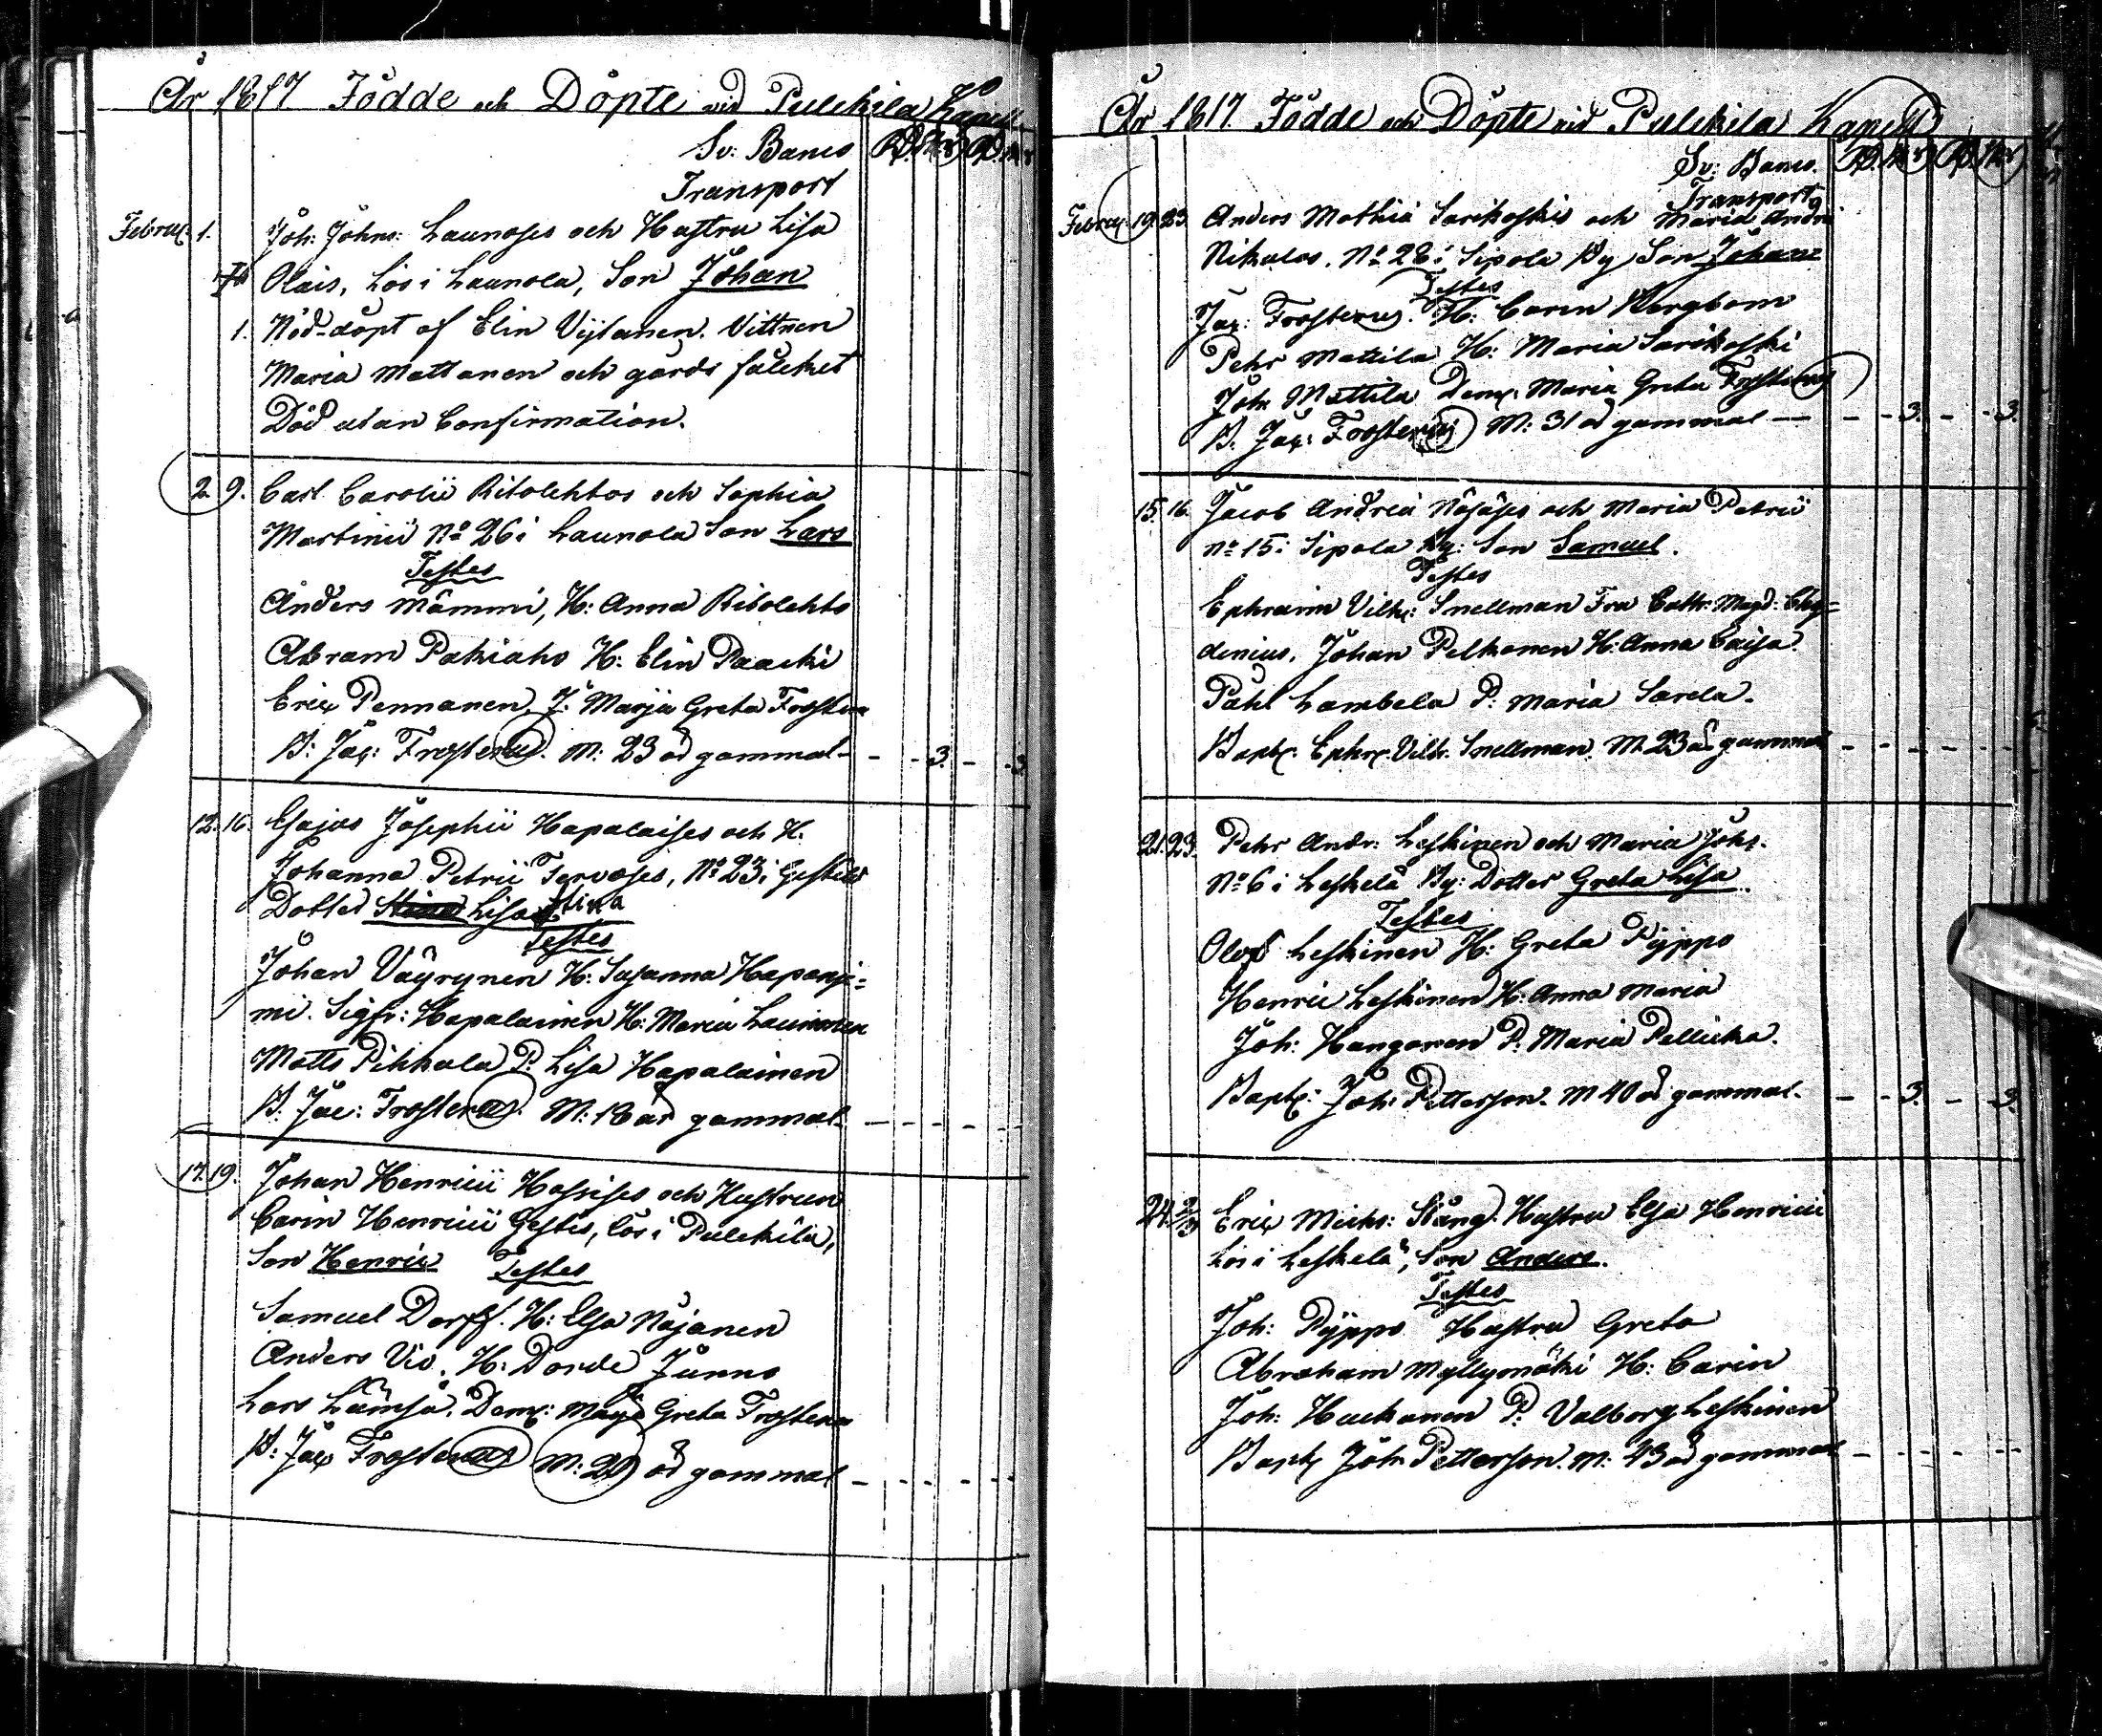 År 1817 Födde och Döpte vid Pulckila Kapell
Sv: Banco Rd. Rd.
Transport
Februar. 1. Joh: Johns: Launoses och Hustru Lisa
Olais, Lös i Launola, Son Johan
1. Nöd-döpt af Elin Vijtanen. Vittnen
Maria Mattanen och gårds fålcket
Död utan Confirmation.
2. 9. Carl Carolii Ritolehtos och Sophia
Martinii No 26 i Launola Son Lars
Testes
Anders Mämmi, H: Anna Ritolehto
Abram Pakiaho H: Elin Paacki
Eric Pennanen, J. Marja Greta Frosterus
B: Jac: Frosterus. M: 23 år gammal - - - 3. - - 3.
12. 16. Esajas Josephii Hapalaises och H.
Johanna Petrii Tervoses, No 23 i
Dotter Lisa Stina
Testes
Johan Väyrynen H: Susanna Hapanje=
mi. Sigfr: Hapalainen H: Maria Launonen
Matts Pikkala P: Lisa Hapalainen
B. Jac: Frosterus. M: 18 år gammal - - - - - -
17. 19. Johan Henricii Hassises och Hustrun
Carin Henricii Gestis, lös i Pulckila,
Son Henric Testes
Samuel Dorff. H: Elsa Näjänen
Anders Vio. H: Dorde Junno
Lars Lämsä. Dem: Maya Greta Frosterus
B: Jac Frosterus M: 20 år gammal - - - - - -
År 1817. Födde och Döpte vid Pulckila Kapell
Sv: Banco. Rd. Rd.
Transport
Februar. 19. 23. Anders Mathiä Sarikoskis och Maria Andrä
Nikulas. No 28 i Sipola By Son Johan
Testes
Jac: Frosterus. H: Carin Bergbom
Pehr Mattila H: Maria Sarikoski
Joh. Mattila Dem. Maria Greta Frosterus
B. Jac: Frosterus M: 31 år gammal - - - 3. - - 3.
15. 16. Jacob Andreä Näjäjes och Maria Petrii
No 15 i Sipola By: Son Samuel.
Testes
Ephraim Vilh: Snellman Fru Cath: Magd: Chy=
denius. Johan Pelkonen H: Anna Caisa
Påhl Lambela P: Maria Sarela.
Bapt. Ephr. Vilh. Snellman. M. 23 år gammal - - - - - -
21. 23. Pehr Andr: Leskinen och Maria Johs.
No 6 i Leskelä By: Dotter Greta Lisa.
Testes
Olof Leskinen H: Greta Pyppo
Henric Leskinen H: Anna Maria
Joh: Kangonen P: Maria Pellicka.
Bapt: Joh: Petterson. M 40 år gammal. - - 3. - 3.
24. 2/3 Eric Michs: Stång. Hustru Elsa Henricii
Lös i Leskelä, Son Anders.
Testes
Joh: Pyppo Hustru Greta
Abraham Myllymäki H: Carin
Joh: Huckanen P: Valborg Leskinen
Bapt Joh Petterson. M: 43 år gammal - - - - - -